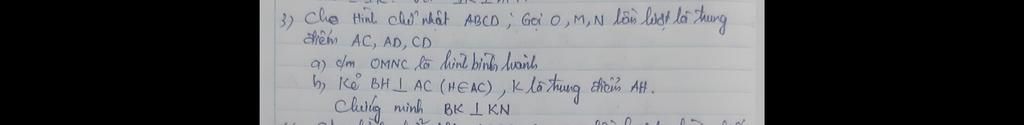 3) Cho Hình chữ nhật ABCD ; Gọi O, M, N lần lượt là trung
điểm AC, AD, CD
a) c/m OMNC là hình bình hành
b) Kẻ BH ⊥ AC (H∈AC), K là trung điểm AH.
Chứng minh BK ⊥ KN